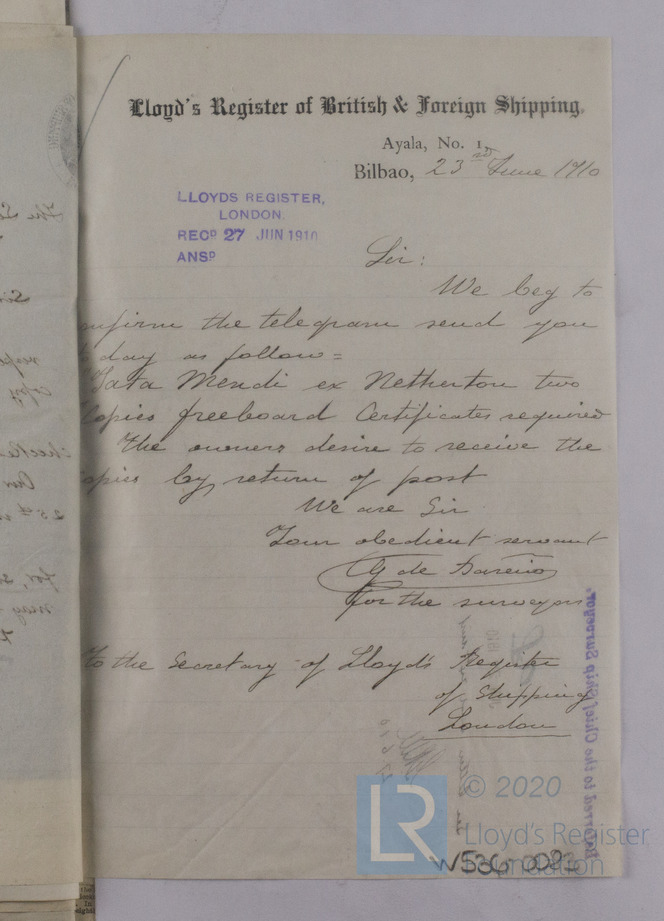 Lloyd's Register of British & Foreign Shipping.
Ayala, No. 1,
Bilbao, 23rd June 1910
LLOYDS REGISTER,
LONDON.
RECD 27 JUN 1910
ANSD
Sir:
We beg to
nfirm the telegram send you
day as follow=
"Jata Mendi ex Netherton two
Copies freeboard Certificates required
The owners desire to receive the
opies by return of post
We are Sir
Your obedient servant
G de
for the surveyors
To the Secretary of Lloyd's Register
of Shipping
London
Referred to the Chief Ship Surveyor.
© 2020
LR
Lloyd's Register
Foundation